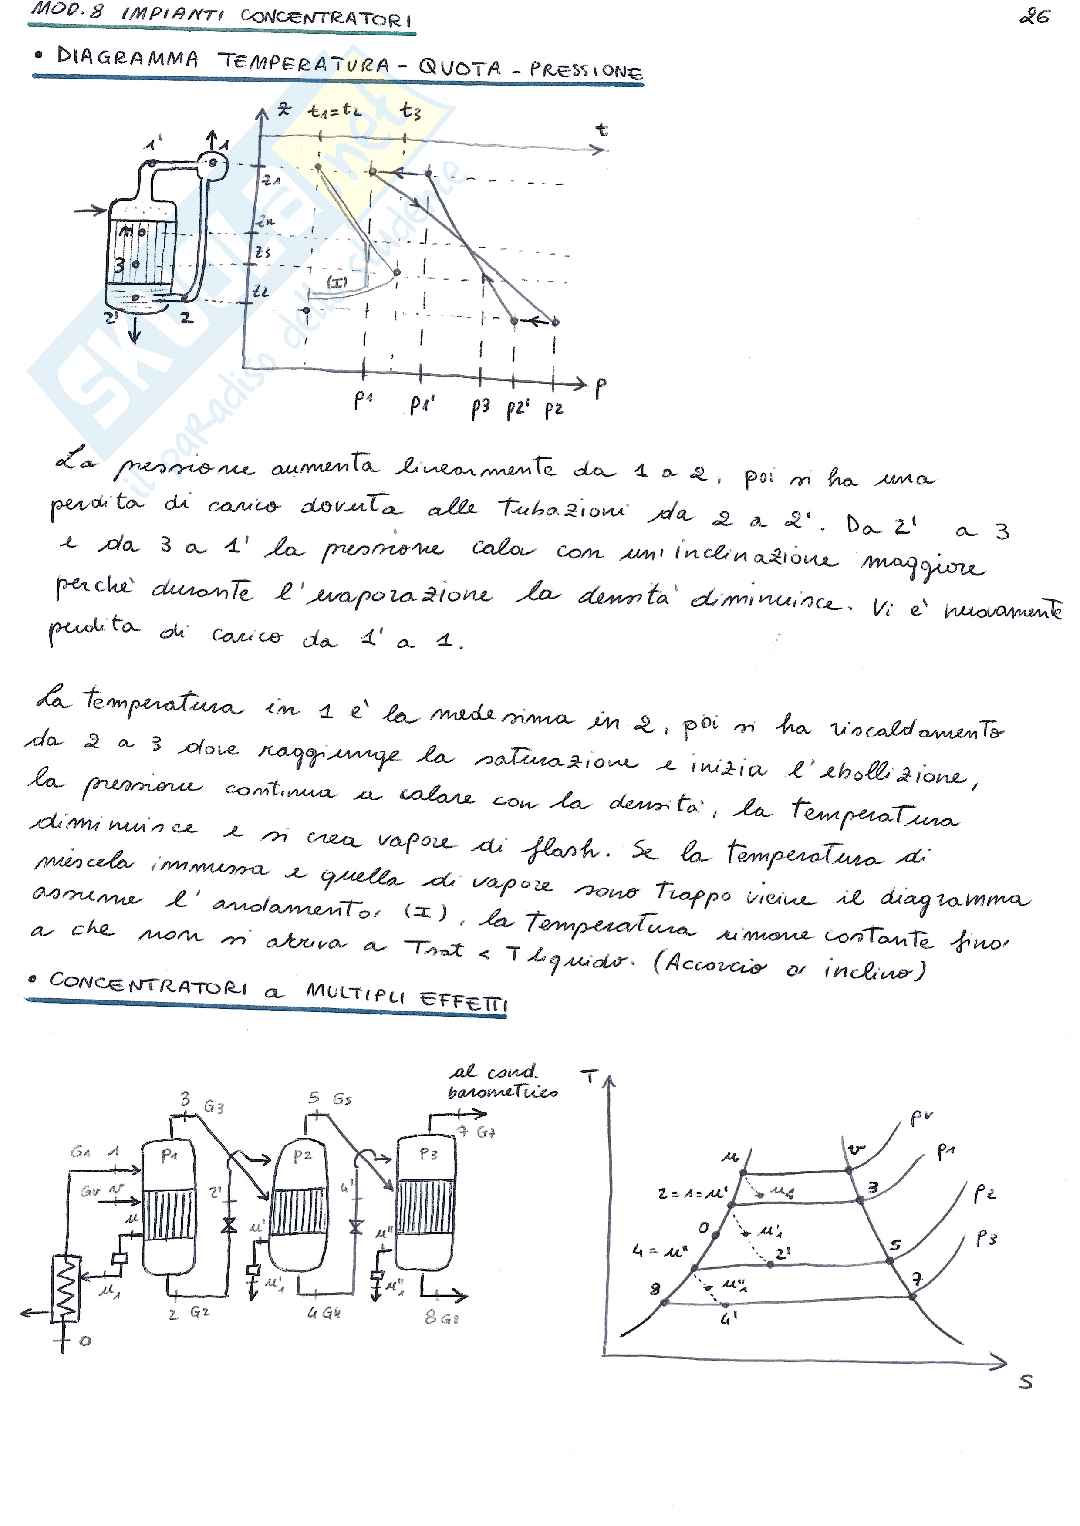 MOD.8 IMPIANTI CONCENTRATORI
26
• DIAGRAMMA TEMPERATURA - QUOTA - PRESSIONE
z t1=t2 t3
t
1' 1
z1
n zn
3 z3
(I)
z2
2' 2
p1 p1' p3 p2' p2 p
SKUOLA.net
il paradiso dello studente
La pressione aumenta linearmente da 1 a 2, poi si ha una
perdita di carico dovuta alle tubazioni da 2 a 2'. Da 2' a 3
e da 3 a 1' la pressione cala con un'inclinazione maggiore
perchè durante l'evaporazione la densità diminuisce. Vi è nuovamente
perdita di carico da 1' a 1.
La temperatura in 1 è la medesima in 2, poi si ha riscaldamento
da 2 a 3 dove raggiunge la saturazione e inizia l'ebollizione,
la pressione continua a calare con la densità, la temperatura
diminuisce e si crea vapore di flash. Se la temperatura di
miscela immessa e quella di vapore sono troppo vicine il diagramma
assume l'andamento (I), la temperatura rimane costante fino
a che non si arriva a Tsat < T liquido. (Accorcio o inclino)
• CONCENTRATORI a MULTIPLI EFFETTI
al cond.
barometrico
3 G3 5 G5 7 G7
G1 1 p1 p2 p3
Gv v 2' 4'
u u' u''
u1 u'1 u''1
2 G2 4 G4 8 G8
0
T
u v pv
p1
2=1=u' u1 3
p2
0 u'1
p3
4=u'' 2' 5
8 u''1 7
4'
S